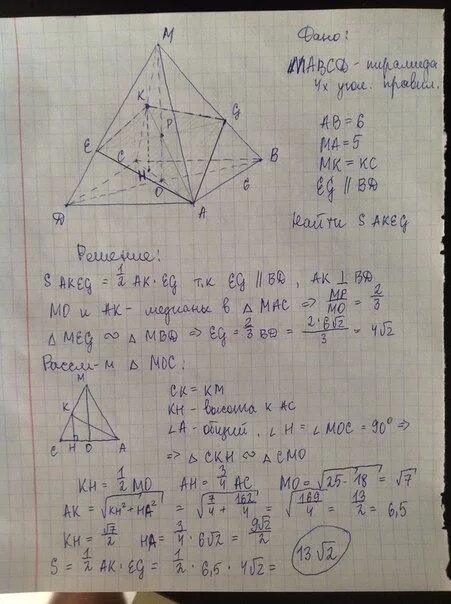 Дано:
MABCD - пирамида
4х угол. правил.
AB = 6
MA = 5
MK = KC
EG || BD
Найти S AKEG
M
K
P
G
E
C
B
H
O
6
D
A
Решение:
S AKEG = 1/2 AK · EG т.к EG || BD, AK ⊥ BD
MO и AK - медианы в △ MAC ⇒ MP/MO = 2/3
△ MEG ∾ △ MBD ⇒ EG = 2/3 BD = 2·6√2/3 = 4√2
Рассм-м △ MOC:
M
K
C H O A
CK = KM
KH - высота к AC
∠A - общий, ∠H = ∠MOC = 90° ⇒
⇒ △ CKH ∾ △ CMO
KH = 1/2 MO AH = 3/4 AC MO = √25-18 = √7
AK = √KH²+HA² = √7/4 + 162/4 = √169/4 = 13/2 = 6,5
KH = √7/2 HA = 3/4 · 6√2 = 9√2/2
S = 1/2 AK · EG = 1/2 · 6,5 · 4√2 = 13√2